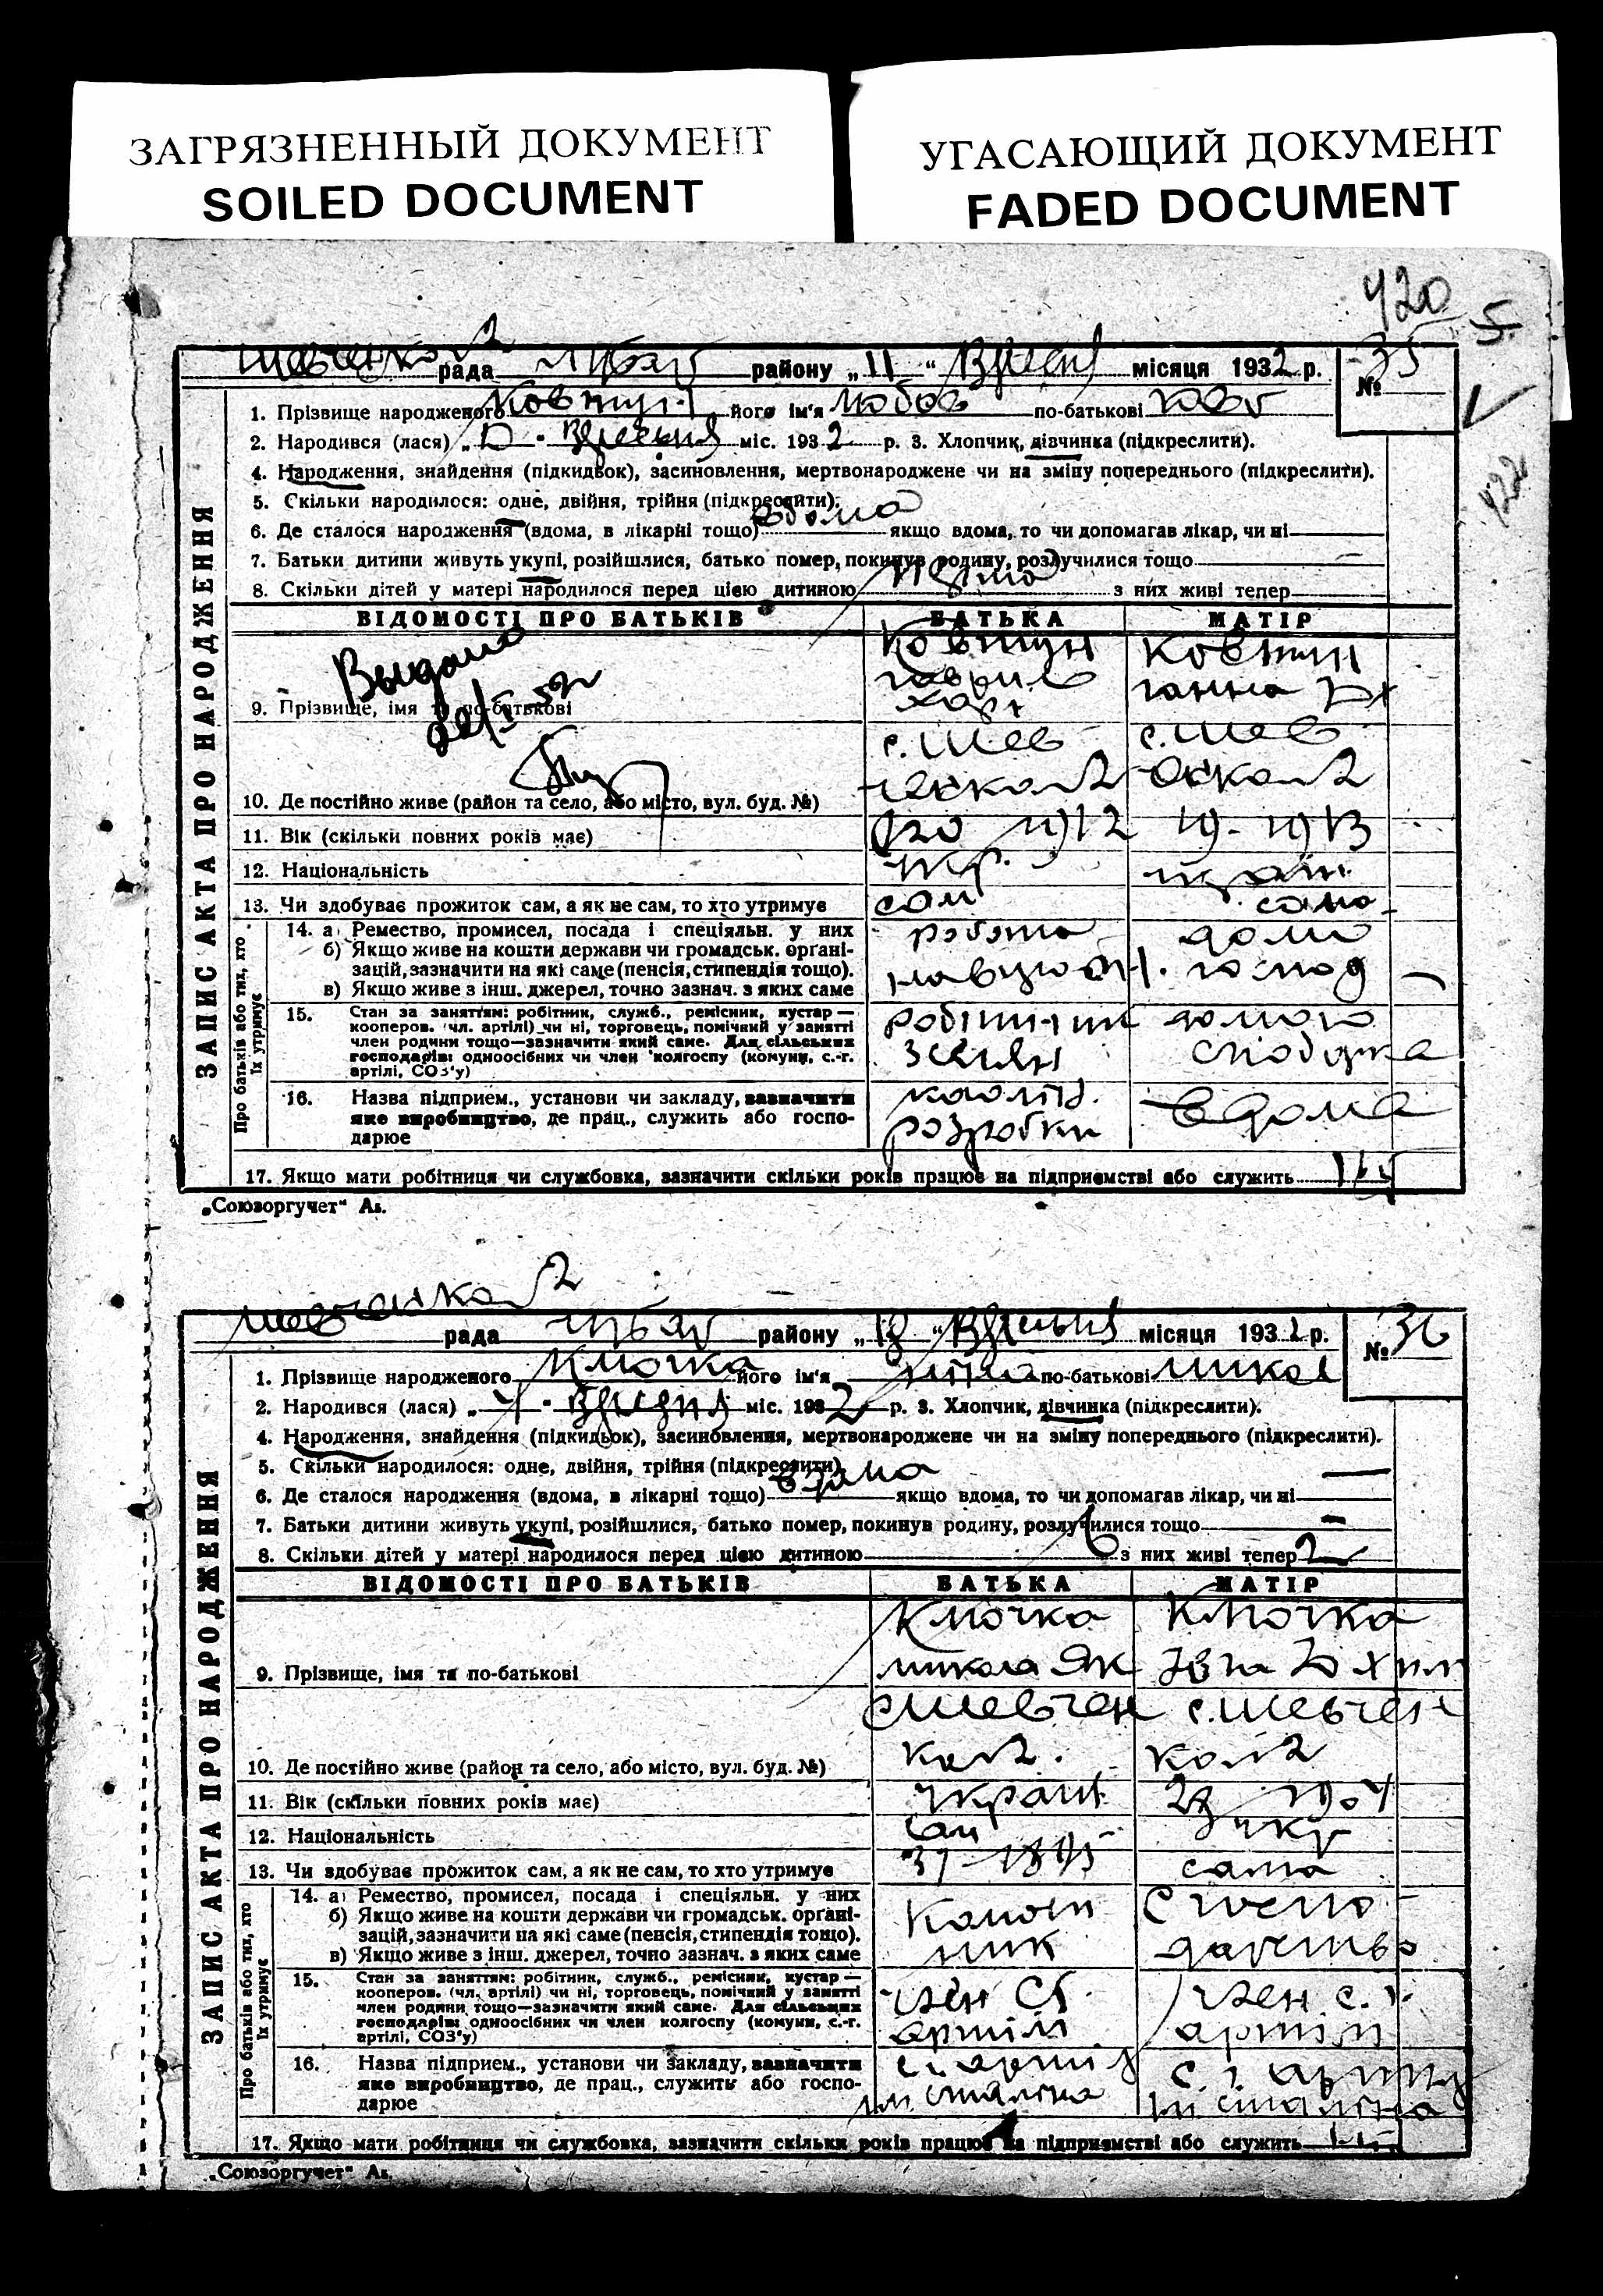 ЗАГРЯЗНЕННЫЙ ДОКУМЕНТ
SOILED DOCUMENT
УГАСАЮЩИЙ ДОКУМЕНТ
FADED DOCUMENT
420
5
422
рада району „11“ Вресня місяця 1932 р. № 35
1. Прізвище народженого Ковтун його ім'я Любов по-батькові
2. Народився (лася) „ міс. 1932 р. 3. Хлопчик, дівчинка (підкреслити).
4. Народження, знайдення (підкидьок), засиновлення, мертвонароджене чи на зміну попереднього (підкреслити).
5. Скільки народилося: одне, двійня, трійня (підкреслити).
6. Де сталося народження (вдома, в лікарні тощо) вдома якщо вдома, то чи допомагав лікар, чи ні
7. Батьки дитини живуть укупі, розійшлися, батько помер, покинув родину, розлучилися тощо
8. Скільки дітей у матері народилося перед цією дитиною перша з них живі тепер
ЗАПИС АКТА ПРО НАРОДЖЕННЯ
ВІДОМОСТІ ПРО БАТЬКІВ БАТЬКА МАТІР
Выдано
Ковтун Ковтун
Гаврило Ганна
9. Прізвище, імя та по-батькові
с. Шев с. Шев
ченко 2 ченко 2
10. Де постійно живе (район та село, або місто, вул. буд. №)
11. Вік (скільки повних років має) 20 1912 19-1913
12. Національність укр. україн.
13. Чи здобуває прожиток сам, а як не сам, то хто утримує сам сама
Про батьків або тих, хто їх утримує
14. а) Ремество, промисел, посада і спеціяльн. у них
б) Якщо живе на кошти держави чи громадськ. органі-
зацій, зазначити на які саме (пенсія, стипендія тощо).
в) Якщо живе з інш. джерел, точно зазнач. з яких саме
робота дом
господ
15. Стан за заняттям: робітник, служб., ремісник, кустар —
кооперов. (чл. артілі) чи ні, торговець, помічний у занятті
член родини тощо—зазначити який саме. Для сільських
господарів: одноосібних чи член колгоспу (комуни, с.-г.
артілі, СОЗ'у)
робітник домого
16. Назва підприєм., установи чи закладу, зазначити
яке виробництво, де прац., служить або госпо-
дарює
каолін. вдома
розробки
17. Якщо мати робітниця чи службовка, зазначити скільки років працює на підприємстві або служить
„Союзоргучет“ Аз.
Шевченко 2
рада району „ “ Вресня місяця 1932 р. № 36
1. Прізвище народженого Клочка його ім'я по-батькові Микол
2. Народився (лася) „ міс. 1932 р. 3. Хлопчик, дівчинка (підкреслити).
4. Народження, знайдення (підкидьок), засиновлення, мертвонароджене чи на зміну попереднього (підкреслити).
5. Скільки народилося: одне, двійня, трійня (підкреслити)
6. Де сталося народження (вдома, в лікарні тощо) вдома якщо вдома, то чи допомагав лікар, чи ні
7. Батьки дитини живуть укупі, розійшлися, батько помер, покинув родину, розлучилися тощо
8. Скільки дітей у матері народилося перед цією дитиною 6 з них живі тепер 2
ЗАПИС АКТА ПРО НАРОДЖЕННЯ
ВІДОМОСТІ ПРО БАТЬКІВ БАТЬКА МАТІР
Клочка Клочка
9. Прізвище, імя та по-батькові Микола Як
с Шевчен с. Шевчен
10. Де постійно живе (район та село, або місто, вул. буд. №) ко 2. ко 2
11. Вік (скільки повних років має) україн. 1904
12. Національність сам укр
13. Чи здобуває прожиток сам, а як не сам, то хто утримує 37-1895 сама
Про батьків або тих, хто їх утримує
14. а) Ремество, промисел, посада і спеціяльн. у них
б) Якщо живе на кошти держави чи громадськ. органі-
зацій, зазначити на які саме (пенсія, стипендія тощо).
в) Якщо живе з інш. джерел, точно зазнач. з яких саме
15. Стан за заняттям: робітник, служб., ремісник, кустар —
кооперов. (чл. артілі) чи ні, торговець, помічний у занятті
член родини тощо—зазначити який саме. Для сільських
господарів: одноосібних чи член колгоспу (комуни, с.-г.
артілі, СОЗ'у)
член с.г. член с.г.
артілі артілі
16. Назва підприєм., установи чи закладу, зазначити
яке виробництво, де прац., служить або госпо-
дарює
ім Сталіна ім Сталіна
17. Якщо мати робітниця чи службовка, зазначити скільки років працює на підприємстві або служить
„Союзоргучет“ Аз.